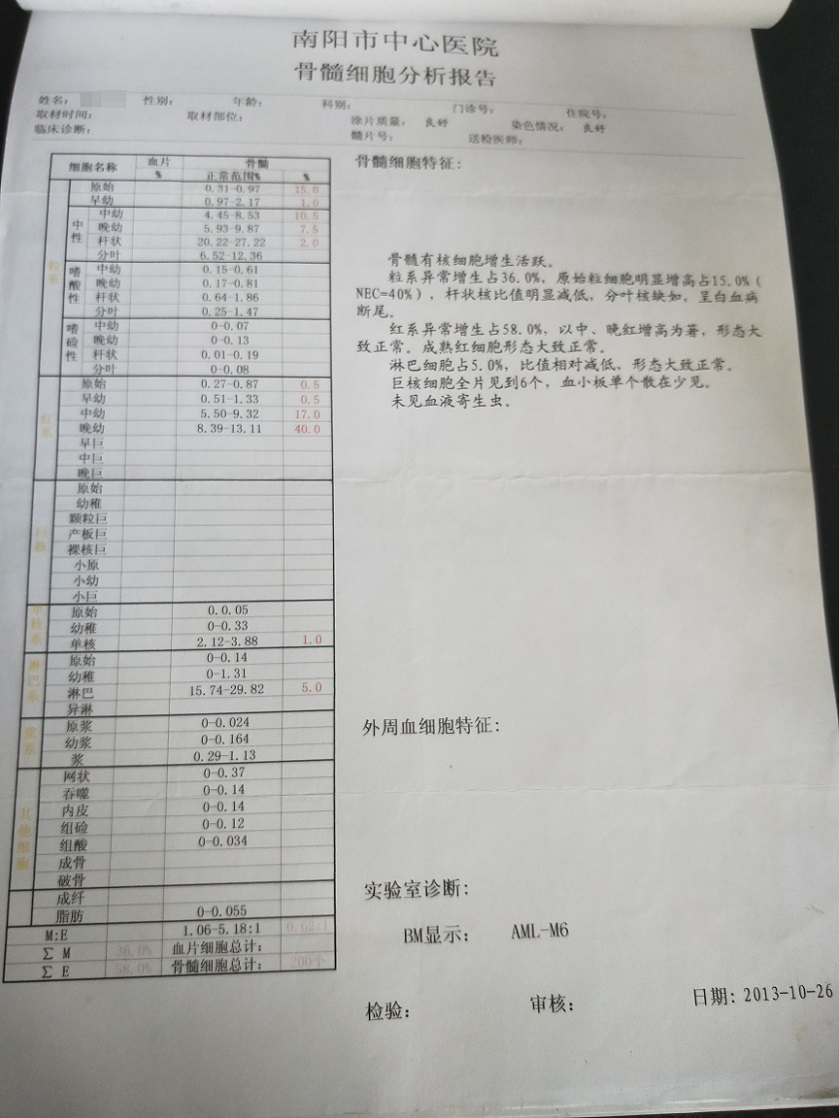 南阳市中心医院
骨髓细胞分析报告
姓名： 性别： 年龄： 科别： 门诊号： 住院号：
取材时间： 取材部位： 涂片质量： 良好 染色情况： 良好
临床诊断： 髓片号： 送检医师：
细胞名称 血片 % 骨髓 正常范围% %
粒系
原始 0.31-0.97 15.0
早幼 0.97-2.17 1.0
中性
中幼 4.45-8.53 10.5
晚幼 5.93-9.87 7.5
杆状 20.22-27.22 2.0
分叶 6.52-12.36
嗜酸性
中幼 0.15-0.61
晚幼 0.17-0.81
杆状 0.64-1.86
分叶 0.25-1.47
嗜硷性
中幼 0-0.07
晚幼 0-0.13
杆状 0.01-0.19
分叶 0-0.08
红系
原始 0.27-0.87 0.5
早幼 0.51-1.33 0.5
中幼 5.50-9.32 17.0
晚幼 8.39-13.11 40.0
早巨
中巨
晚巨
巨核
原始
幼稚
颗粒巨
产板巨
裸核巨
小原
小幼
小巨
单核系
原始 0.0.05
幼稚 0-0.33
单核 2.12-3.88 1.0
淋巴系
原始 0-0.14
幼稚 0-1.31
淋巴 15.74-29.82 5.0
异淋
浆系
原浆 0-0.024
幼浆 0-0.164
浆 0.29-1.13
其他细胞
网状 0-0.37
吞噬 0-0.14
内皮 0-0.14
组硷 0-0.12
组酸 0-0.034
成骨
破骨
成纤
脂肪 0-0.055
M:E 1.06-5.18:1 0.62:1
∑ M 36.0% 血片细胞总计：
∑ E 58.0% 骨髓细胞总计： 200个
骨髓细胞特征：
骨髓有核细胞增生活跃。
粒系异常增生占36.0%，原始粒细胞明显增高占15.0%（
NEC=40%），杆状核比值明显减低，分叶核缺如。呈白血病
断尾。
红系异常增生占58.0%，以中、晚红增高为著，形态大
致正常。成熟红细胞形态大致正常。
淋巴细胞占5.0%，比值相对减低，形态大致正常。
巨核细胞全片见到6个，血小板单个散在少见。
未见血液寄生虫。
外周血细胞特征：
实验室诊断：
BM显示： AML-M6
检验： 审核： 日期：2013-10-26